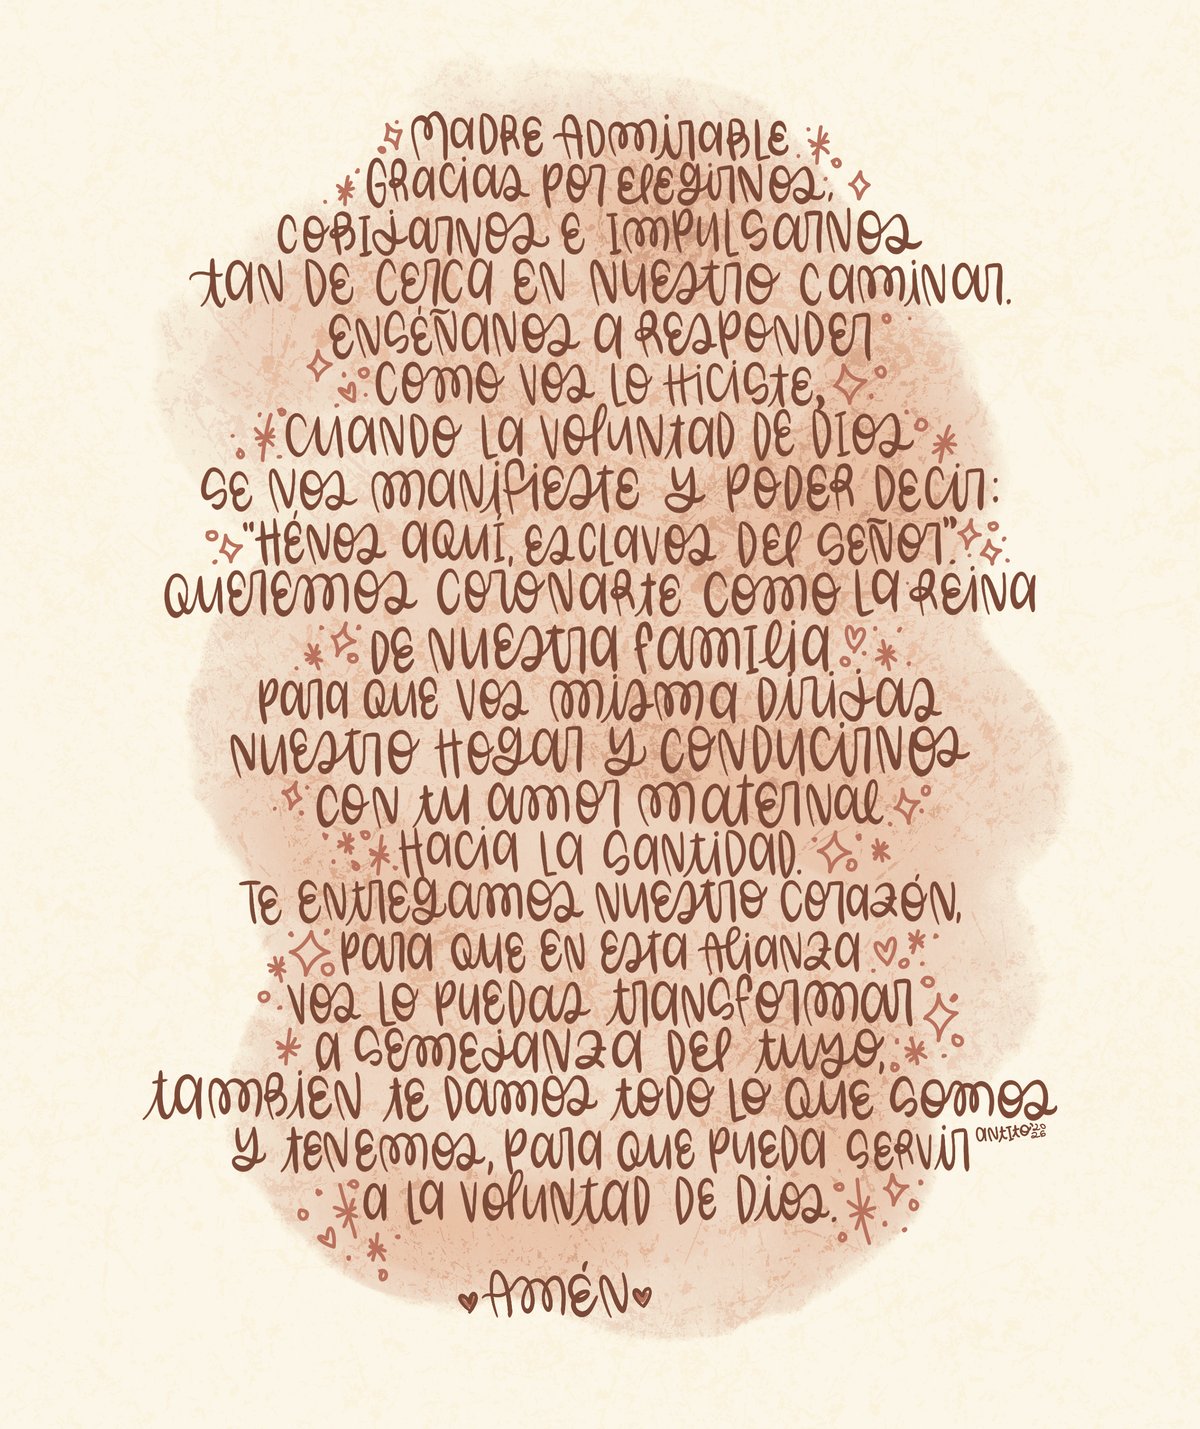 Madre Admirable
Gracias por elegirnos,
cobijarnos e impulsarnos
tan de cerca en nuestro caminar.
Enséñanos a responder
como vos lo hiciste,
cuando la voluntad de Dios
se nos manifieste y poder decir:
"Hénos aquí, esclavos del Señor"
Queremos coronarte como la Reina
de nuestra familia
para que vos misma dirijas
nuestro hogar y conducirnos
con tu amor maternal
hacia la santidad.
Te entregamos nuestro corazón,
para que en esta Alianza
vos lo puedas transformar
a semejanza del tuyo,
también te damos todo lo que somos
y tenemos, para que pueda servir
antito '2026
a la voluntad de Dios.
Amén